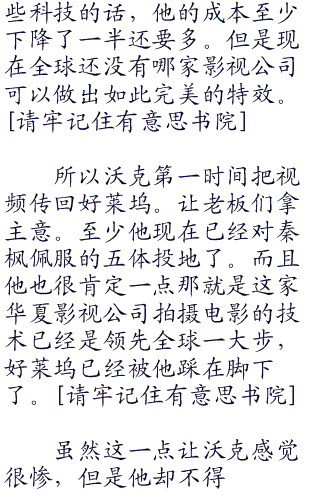 些科技的话，他的成本至少
下降了一半还要多。但是现
在全球还没有哪家影视公司
可以做出如此完美的特效。
[请牢记住有意思书院]
所以沃克第一时间把视
频传回好莱坞。让老板们拿
主意。至少他现在已经对秦
枫佩服的五体投地了。而且
他也很肯定一点那就是这家
华夏影视公司拍摄电影的技
术已经是领先全球一大步，
好莱坞已经被他踩在脚下
了。[请牢记住有意思书院]
虽然这一点让沃克感觉
很惨，但是他却不得